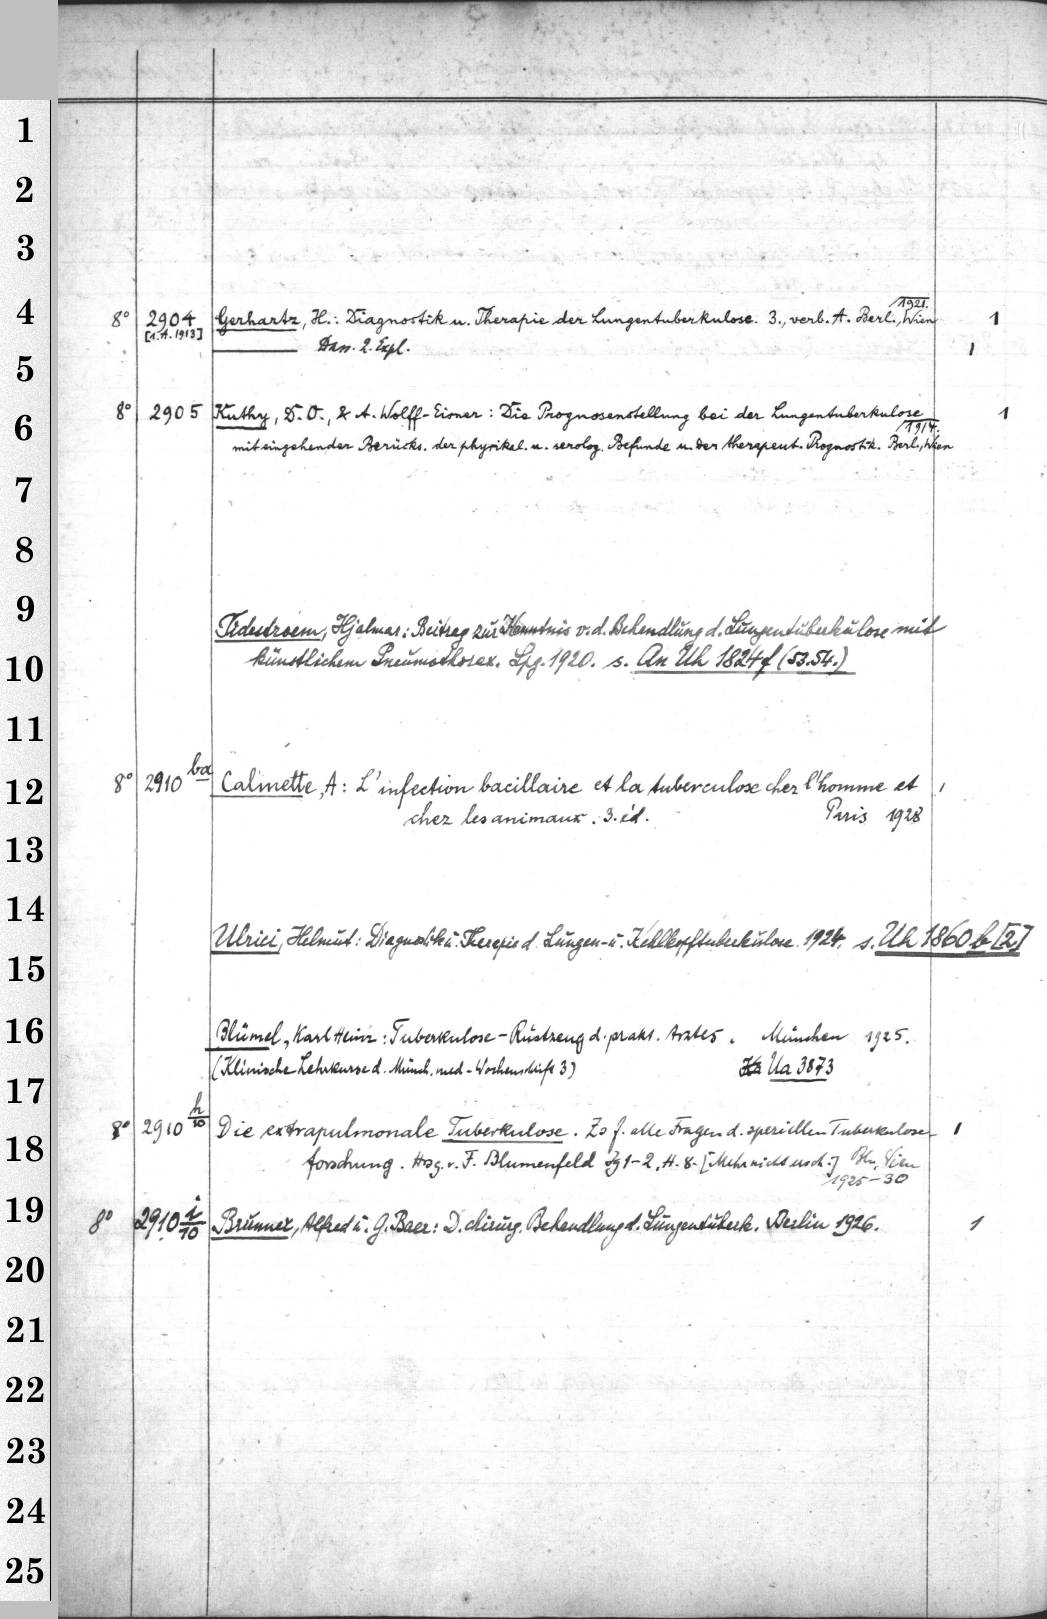 1
2
3
4
5
6
7
8
9
10
11
12
13
14
15
16
17
18
19
20
21
22
23
24
25
8° 2904 Gerhartz, H.: Diagnostik u. Therapie der Lungentuberkulose. 3., verb. A. Berl., Wien 1921. 1
[1. A. 1913] ——— Dass. 2. Expl. 1
8° 2905 Kuthy, D. O., & A. Wolff-Eisner: Die Prognosenstellung bei der Lungentuberkulose 1
mit eingehender Berücks. der physikal. u. serolog. Befunde u. der therapeut. Prognostik. Berl., Wien 1914.
Tidestroem, Hjalmar: Beitrag zur Kenntnis v. d. Behandlung d. Lungentuberkulose mit
künstlichem Pneumothorax. Lpg. 1920. s. An Uh 1824 f (53.54.)
8° 2910 ba Calmette, A: L'infection bacillaire et la tuberculose chez l'homme et 1
chez les animaux. 3. éd. Paris 1928
Ulrici, Helmut: Diagnostik u. Therapie d. Lungen- u. Kehlkopftuberkulose. 1924. s. Uh 1860 b [2]
Blümel, Karl Heinz: Tuberkulose-Rüstzeug d. prakt. Arztes. München 1925.
(Klinische Lehrkurse d. Münch. med. Wochenschrift 3) Ua 3873
8° 2910 h/10 Die extrapulmonale Tuberkulose. Zs f. alle Fragen d. speziellen Tuberkulose- 1
forschung. Hsg. v. F. Blumenfeld Jg 1-2, H. 8. [Mehr nicht ersch.] Bln, Wien
1925-30
8° 2910 i/10 Brunner, Alfred u. G. Baer: D. chirurg. Behandlung d. Lungentuberk. Berlin 1926. 1